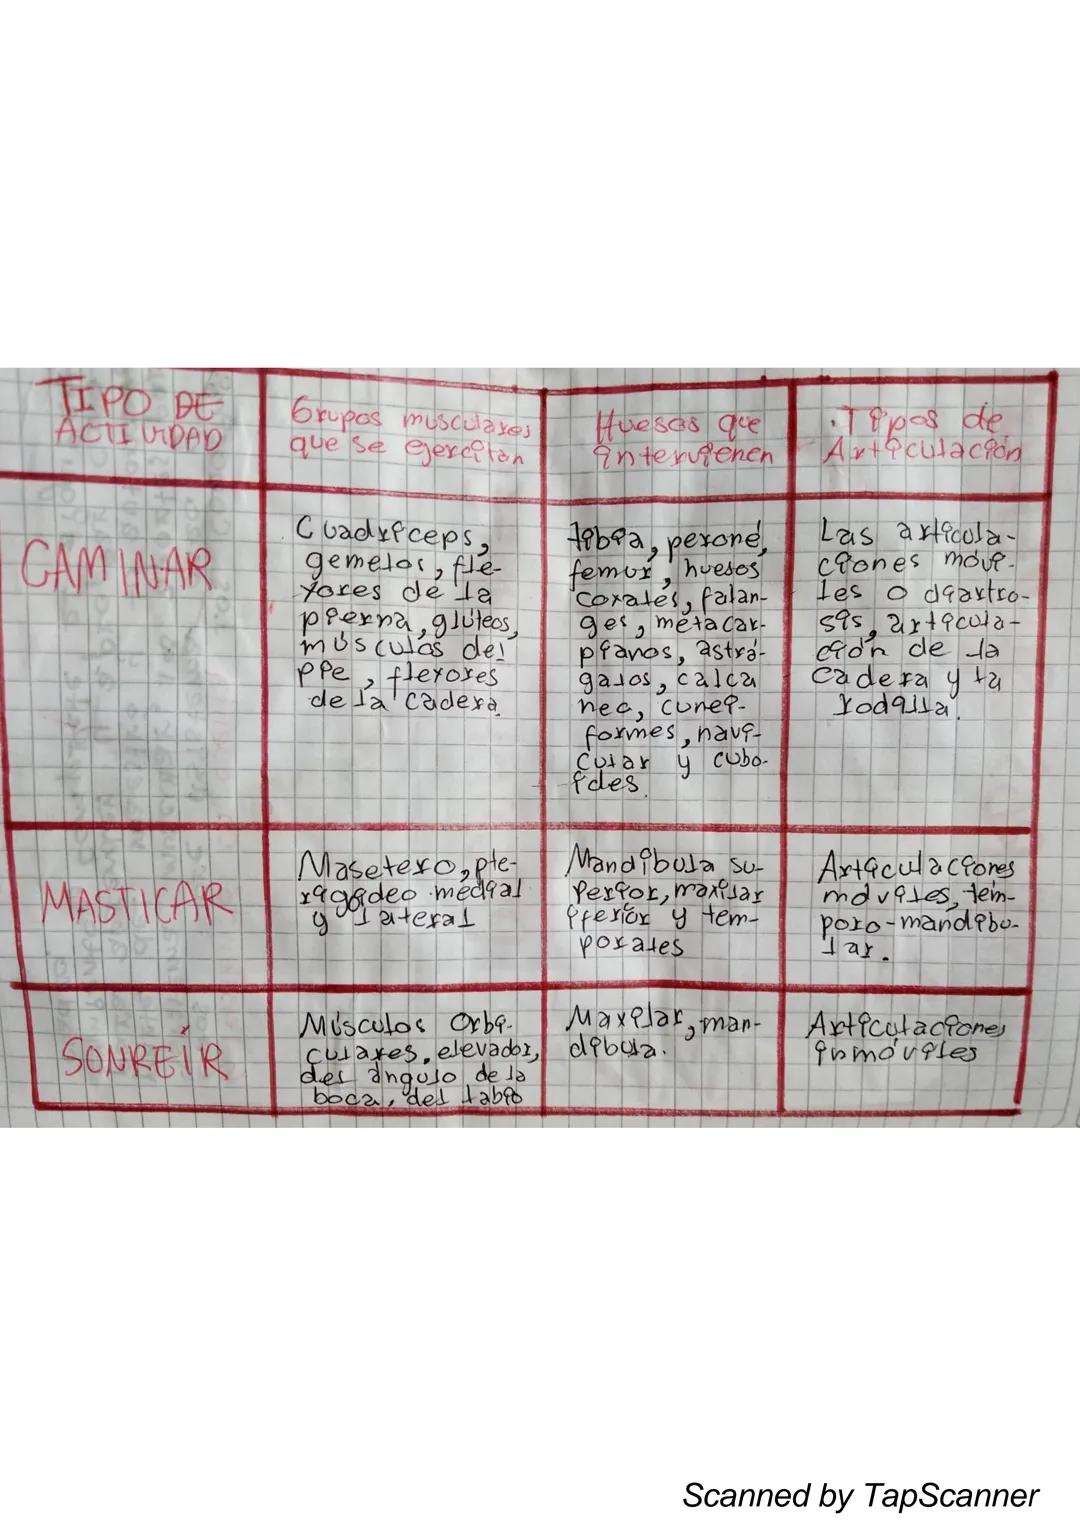 TIPO DE
ACTIVIDAD
Grupos musculares
que se ejercitan
Huesos que
intervienen
Tipos de
Articulación
CAMINAR
Cuadríceps,
gemelos, fle-
xores de la
pierna, glúteos,
músculos del
pie, flexores
de la cadera.
tibia, peroné,
femur, huesos
coxales, falan-
ges, metacar-
pianos, astrá-
galos, calca
neo, cunei-
formes, navi-
cular y cubo-
ides.
Las articula-
ciones móvi-
les o diartro-
sis, articula-
ción de la
cadera y la
rodilla.
MASTICAR
Masetero, pte-
rigoideo medial
y lateral
Mandíbula su-
perior, maxilar
iferior y tem-
porales
Articulaciones
móviles, tém-
poro-mandibu-
lar.
SONREÍR
Músculos Orbi-
culares, elevador,
del ángulo de la
boca, del labio
Maxilar, man-
díbula.
Articulaciones
inmóviles
Scanned by TapScanner